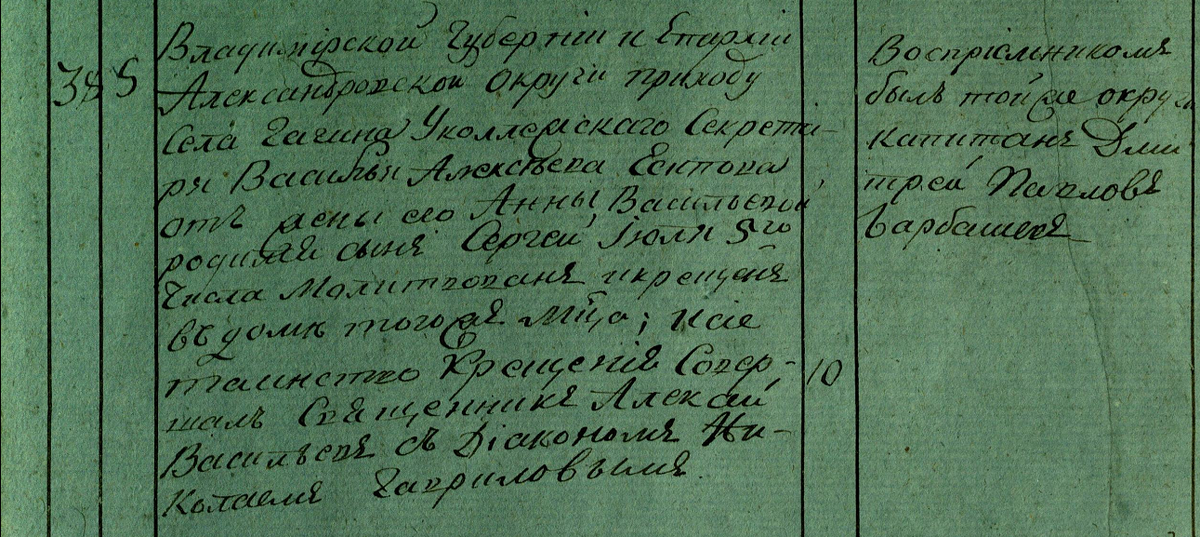 38 5
Владимірской Губерніи и Епархіи
Александровской округи приходу
Села Гагина Уколлежскаго Секрета-
ря Василья Алексѣева Есипова
отъ жены его Анны Васильевой
родился сынъ Сергей Іюля 5го
числа Молитвованъ и крещенъ
въ домѣ того же мца; и сие
таинство Крещенія Совер-
шалъ Священникъ Алексѣй
Васильевъ съ Діакономъ Ни-
колаемъ Гавриловымъ
10
Воспріемникомъ
былъ той же округи
капитанъ Дми
трей Павловъ
Барбашевъ